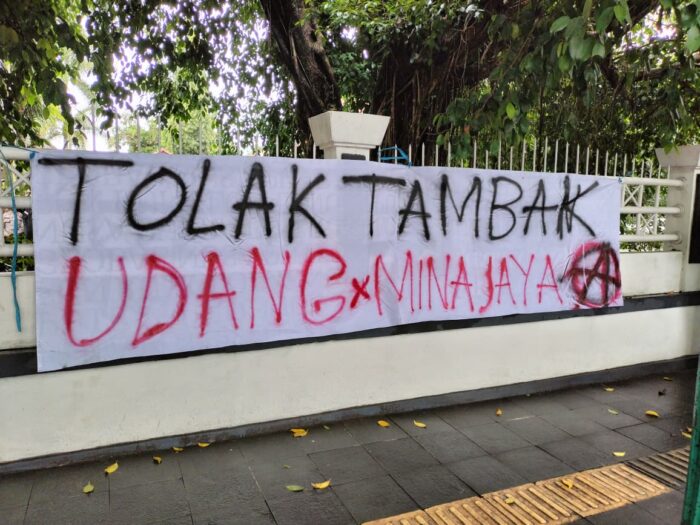 TOLAK TAMBAK
UDANG x MINA JAYA Ⓐ